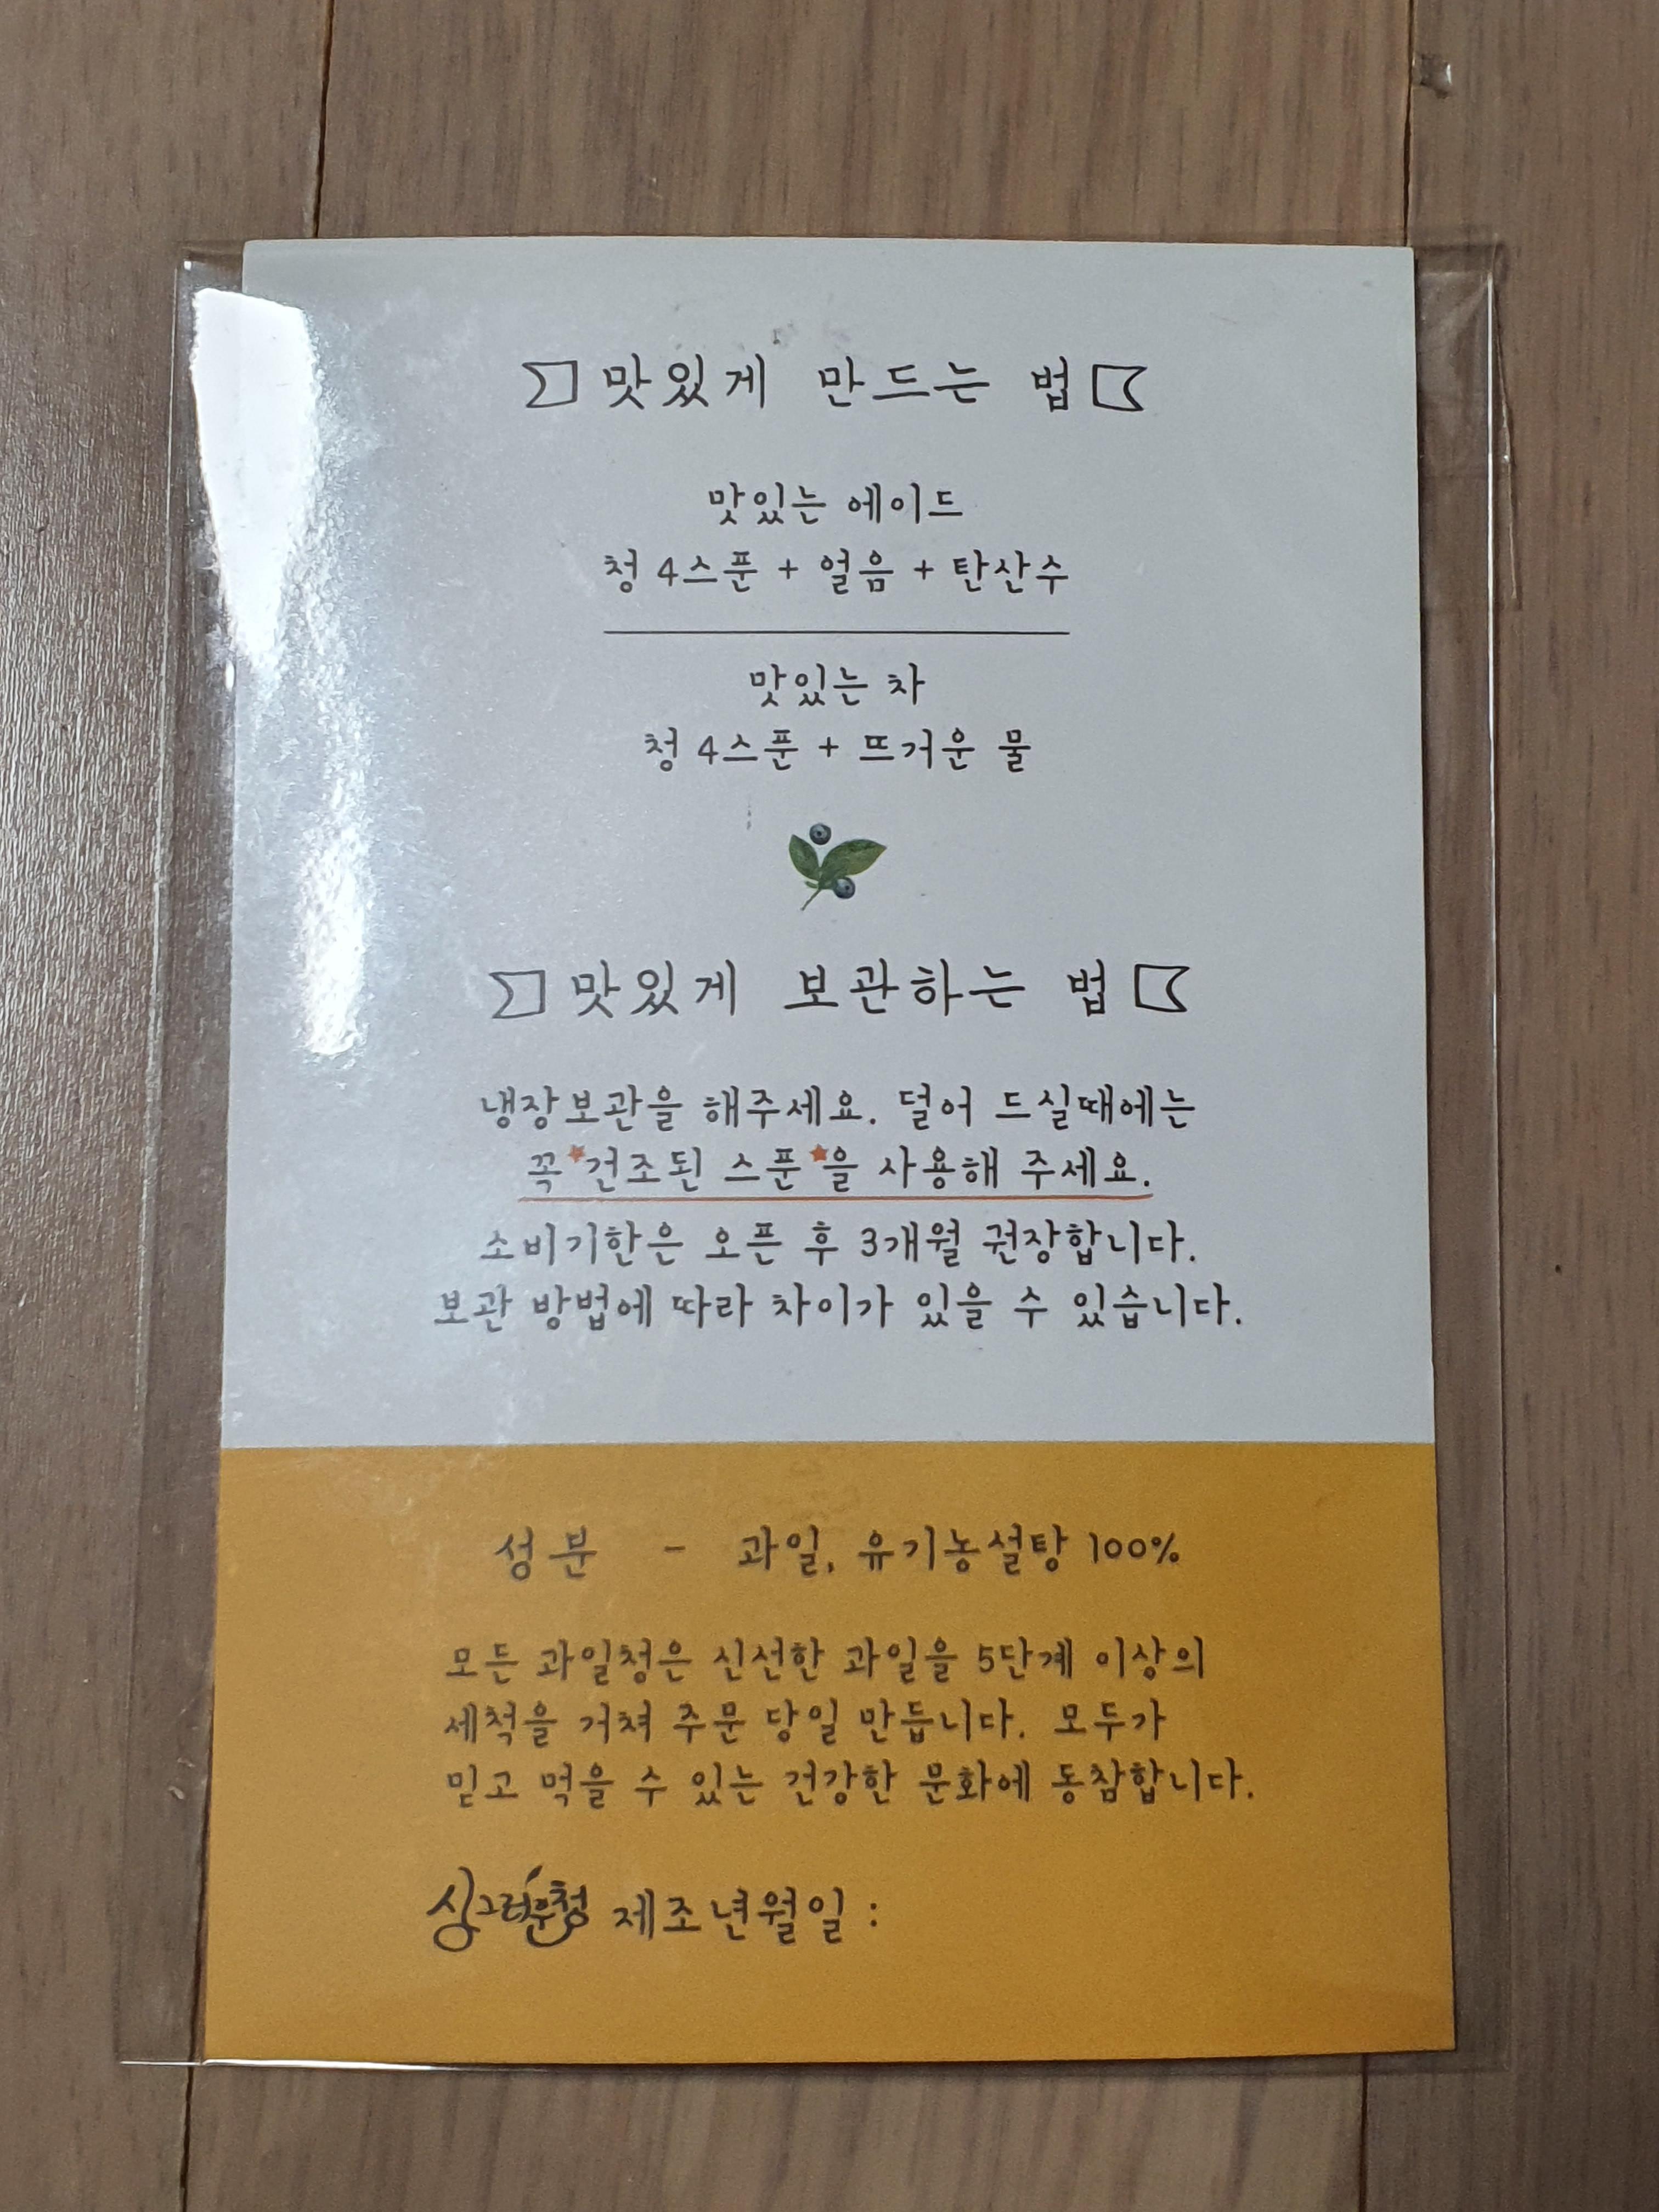 맛있게 만드는 법
맛있는 에이드
청 4스푼 + 얼음 + 탄산수
맛있는 차
청 4스푼 + 뜨거운 물
맛있게 보관하는 법
냉장보관을 해주세요. 덜어 드실때에는
꼭 건조된 스푼 을 사용해 주세요.
소비기한은 오픈 후 3개월 권장합니다.
보관 방법에 따라 차이가 있을 수 있습니다.
성분 - 과일, 유기농설탕 100%
모든 과일청은 신선한 과일을 5단계 이상의
세척을 거쳐 주문 당일 만듭니다. 모두가
믿고 먹을 수 있는 건강한 문화에 동참합니다.
싱그러운청 제조년월일 :